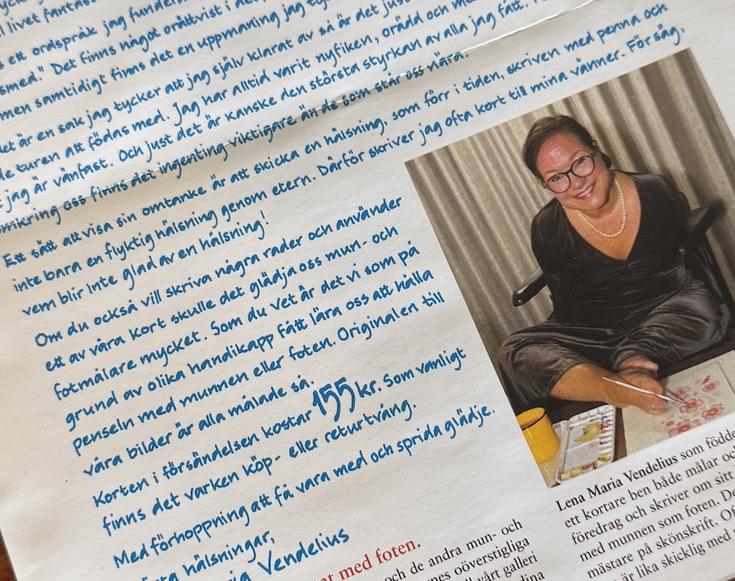 ll livet fantas
s ett ordspråk jag funder
smed." Det finns något orättvist i de
men samtidigt finns det en uppmaning jag ty
det är en sak jag tycker att jag själv klarat av så är det just
de turen att födas med. Jag har alltid varit nyfiken, orädd och
t jag är vänfast. Och just det är kanske den största styrkan av alla jag fått.
mkring oss finns det ingenting viktigare än de som står oss nära.
Ett sätt att visa sin omtanke är att skicka en hälsning, som förr i tiden, skriven med penna och
inte bara en flyktig hälsning genom etern. Därför skriver jag ofta kort till mina vänner. För säg,
vem blir inte glad av en hälsning!
Om du också vill skriva några rader och använder
ett av våra kort skulle det glädja oss mun- och
fotmålare mycket. Som du vet är det vi som på
grund av olika handikapp fått lära oss att hålla
penseln med munnen eller foten. Originalen till
våra bilder är alla målade så.
Korten i försändelsen kostar 155 kr. Som vanligt
finns det varken köp- eller returtvång.
Med förhoppning att få vara med och sprida glädje.
sta hälsningar,
ria Vendelius
at med foten.
och de andra mun- och
nes oöverstigliga
vårt galleri
Lena Maria Vendelius som födde
ett kortare ben både målar oc
föredrag och skriver om sitt
med munnen som foten. De
mästare på skönskrift. Of
lika skicklig med